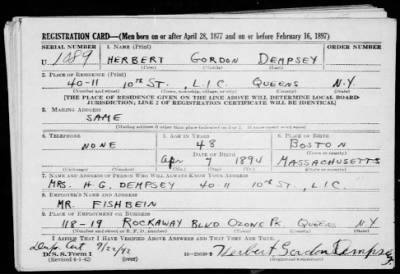 REGISTRATION CARD—(Men born on or after April 28, 1877 and on or before February 16, 1897)
SERIAL NUMBER 1. NAME (Print) ORDER NUMBER
U 1089 HERBERT GORDON DEMPSEY
2. PLACE OF RESIDENCE (Print)
40-11 10TH ST. L.I.C. QUEENS N.Y.
[THE PLACE OF RESIDENCE GIVEN ON THE LINE ABOVE WILL DETERMINE LOCAL BOARD
JURISDICTION; LINE 2 OF REGISTRATION CERTIFICATE WILL BE IDENTICAL]
3. MAILING ADDRESS
SAME
4. TELEPHONE 5. AGE IN YEARS 6. PLACE OF BIRTH
NONE 48 BOSTON
DATE OF BIRTH
Apr 7 1894 MASSACHUSETTS
7. NAME AND ADDRESS OF PERSON WHO WILL ALWAYS KNOW YOUR ADDRESS
MRS. H.G. DEMPSEY 40-11 10TH ST., L.I.C.
8. EMPLOYER'S NAME AND ADDRESS
MR. FISHBEIN
9. PLACE OF EMPLOYMENT OR BUSINESS
118-19 ROCKAWAY BLVD OZONE PK. QUEENS N.Y.
I AFFIRM THAT I HAVE VERIFIED ABOVE ANSWERS AND THAT THEY ARE TRUE.
D. S. S. Form 1
(Revised 4-1-42) Herbert Gordon Dempsey